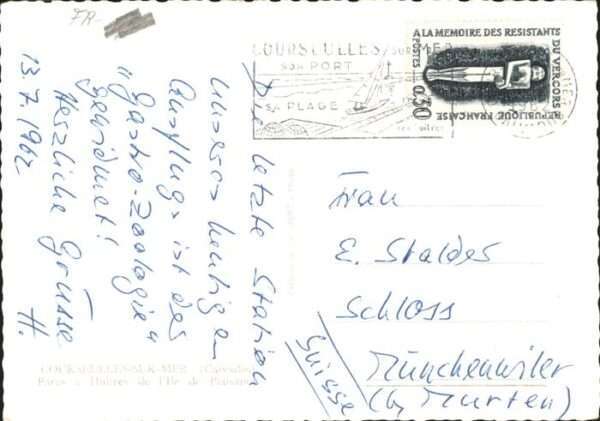 FR-
COURSEULLES/SUR MER
SON PORT
SA PLAGE
A LA MEMOIRE DES RESISTANTS DU VERCORS
POSTES
0,30
REPUBLIQUE FRANÇAISE
1962
Die letzte Station
unseres heutigen
Ausflugs ist der
"Gastro-Zoologie"
gewidmet!
Herzliche Grüsse
H.
13.7.1962
Frau
E. Stalder
Schloss
Münchenwiler
(by Murten)
Suisse
COURSEULLES-SUR-MER (Calvados)
Parcs à Huîtres de l'Ile de Plaisance